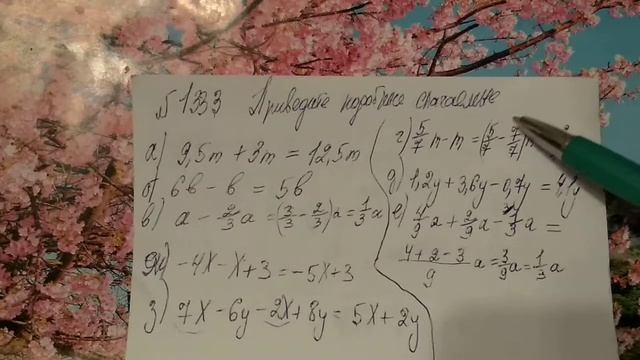 № 1333 Приведите подобные слагаемые
а) 9,5m + 3m = 12,5m
б) 6b - b = 5b
в) a - 2/3 a = (3/3 - 2/3) a = 1/3 a
ж) -4x - x + 3 = -5x + 3
з) 7x - 6y - 2x + 8y = 5x + 2y
г) 5/7 n - n = (5/7 - 7/7)
д) 1,2y + 3,6y - 0,7y = 4,1y
е) 4/9 a + 2/9 a - 1/3 a =
4+2-3/9 a = 3/9 a = 1/3 a